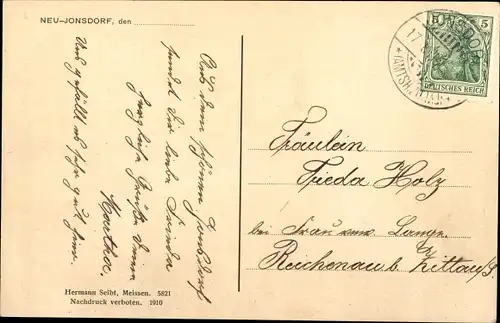 NEU-JONSDORF, den
Aus dem schönen Jonsdorf
sendet die liebe Frieda
herzliche Grüße Deine
Martha.
Uns gefällt es sehr gut hier.
5 5
DEUTSCHES REICH
JONSDORF
17
*(AMTSH. ZITTAU)*
Fräulein
Frieda Holz
bei Frau verw. Lange
Reichenau b. Zittau i/S.
Hermann Seibt, Meissen. 5821
Nachdruck verboten. 1910